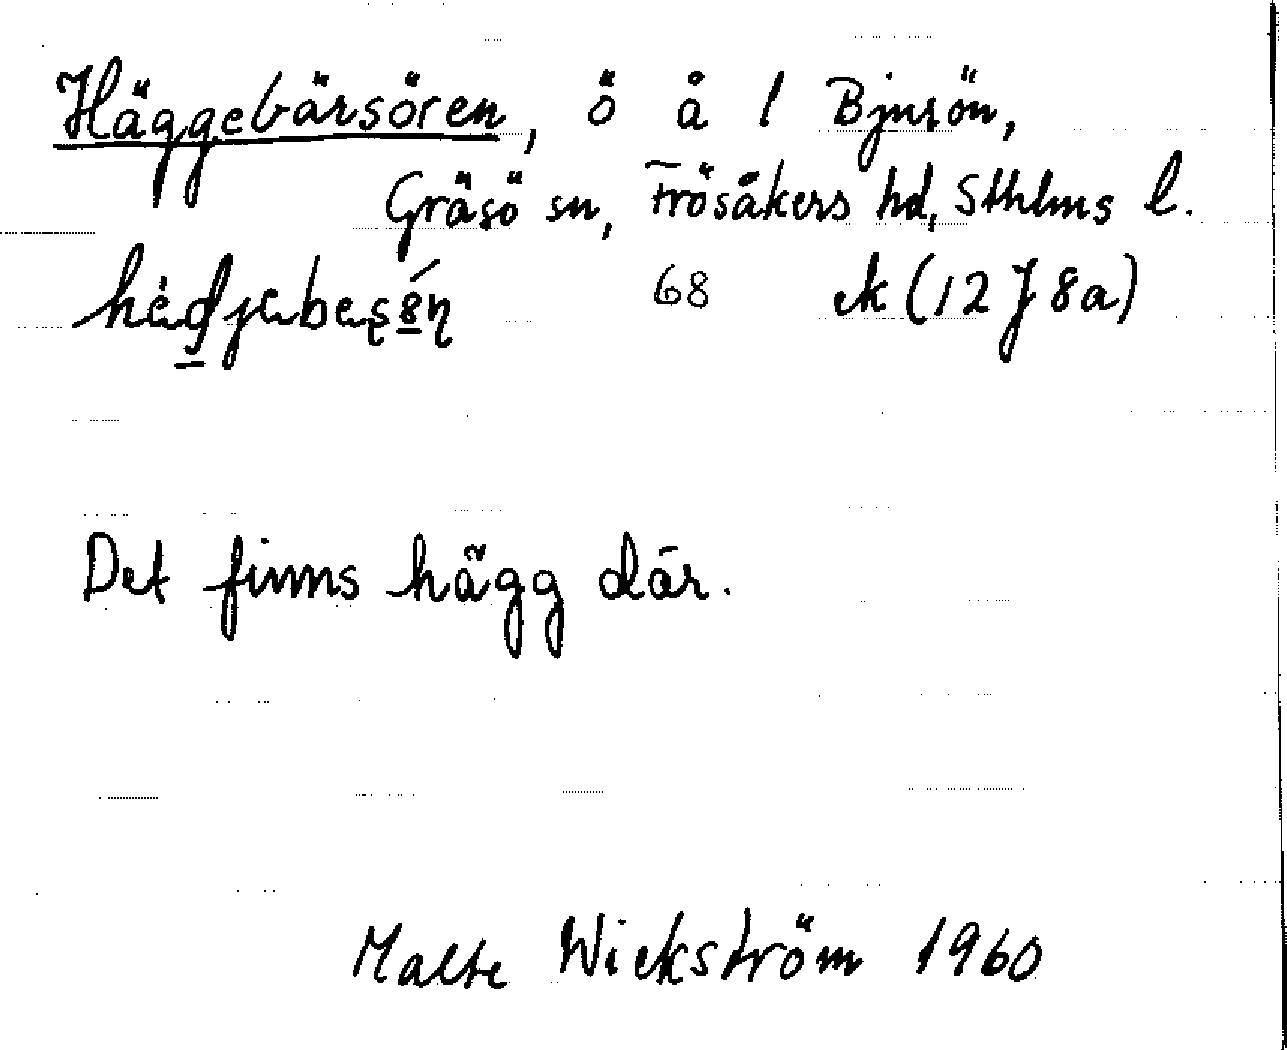 Häggebärsören, ö å l Bjursön,
Gräsö sn, Frösåkers hd, Sthlms l.
68 ek (12 J 8a)
Det finns hägg där.
Malte Wickström 1960